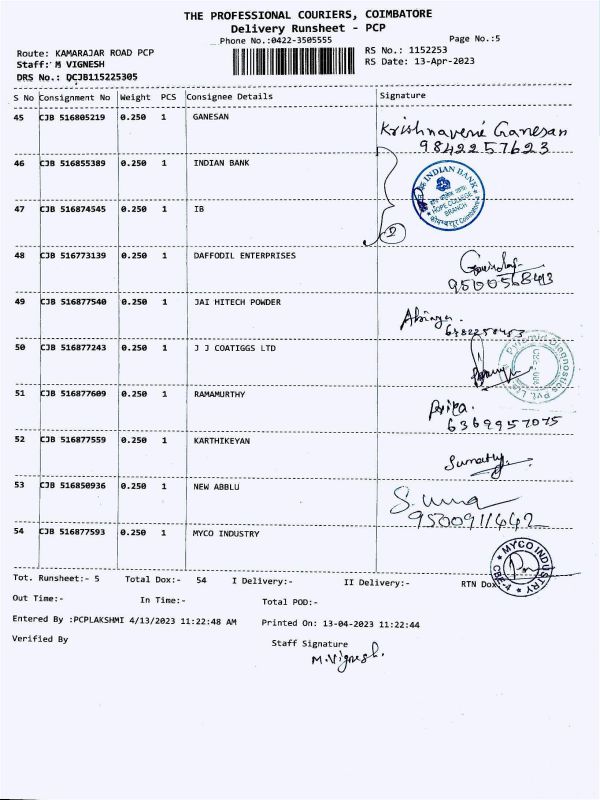 THE PROFESSIONAL COURIERS, COIMBATORE
Delivery Runsheet - PCP
Phone No.:0422-3505555
Page No.:5
Route: KAMARAJAR ROAD PCP
RS No.: 1152253
Staff: M VIGNESH
RS Date: 13-Apr-2023
DRS No.: DCJB115225305
S No Consignment No Weight PCS Consignee Details Signature
45 CJB 516805219 0.250 1 GANESAN
Krishnaveni Ganesan
9842257623
46 CJB 516855389 0.250 1 INDIAN BANK
INDIAN BANK
HOPE COLLEGE
BRANCH
47 CJB 516874545 0.250 1 IB
48 CJB 516773139 0.250 1 DAFFODIL ENTERPRISES
9500568413
49 CJB 516877540 0.250 1 JAI HITECH POWDER
50 CJB 516877243 0.250 1 J J COATIGGS LTD
Pyramid Diagnostics Pvt. Ltd
51 CJB 516877609 0.250 1 RAMAMURTHY
6369957075
52 CJB 516877559 0.250 1 KARTHIKEYAN
53 CJB 516850936 0.250 1 NEW ABBLU
9500911642
54 CJB 516877593 0.250 1 MYCO INDUSTRY
MYCO INDUSTRY
CBE-4
Tot. Runsheet:- 5 Total Dox:- 54 I Delivery:- II Delivery:- RTN Dox
Out Time:- In Time:- Total POD:-
Entered By :PCPLAKSHMI 4/13/2023 11:22:48 AM Printed On: 13-04-2023 11:22:44
Verified By Staff Signature
M.Vignesh.